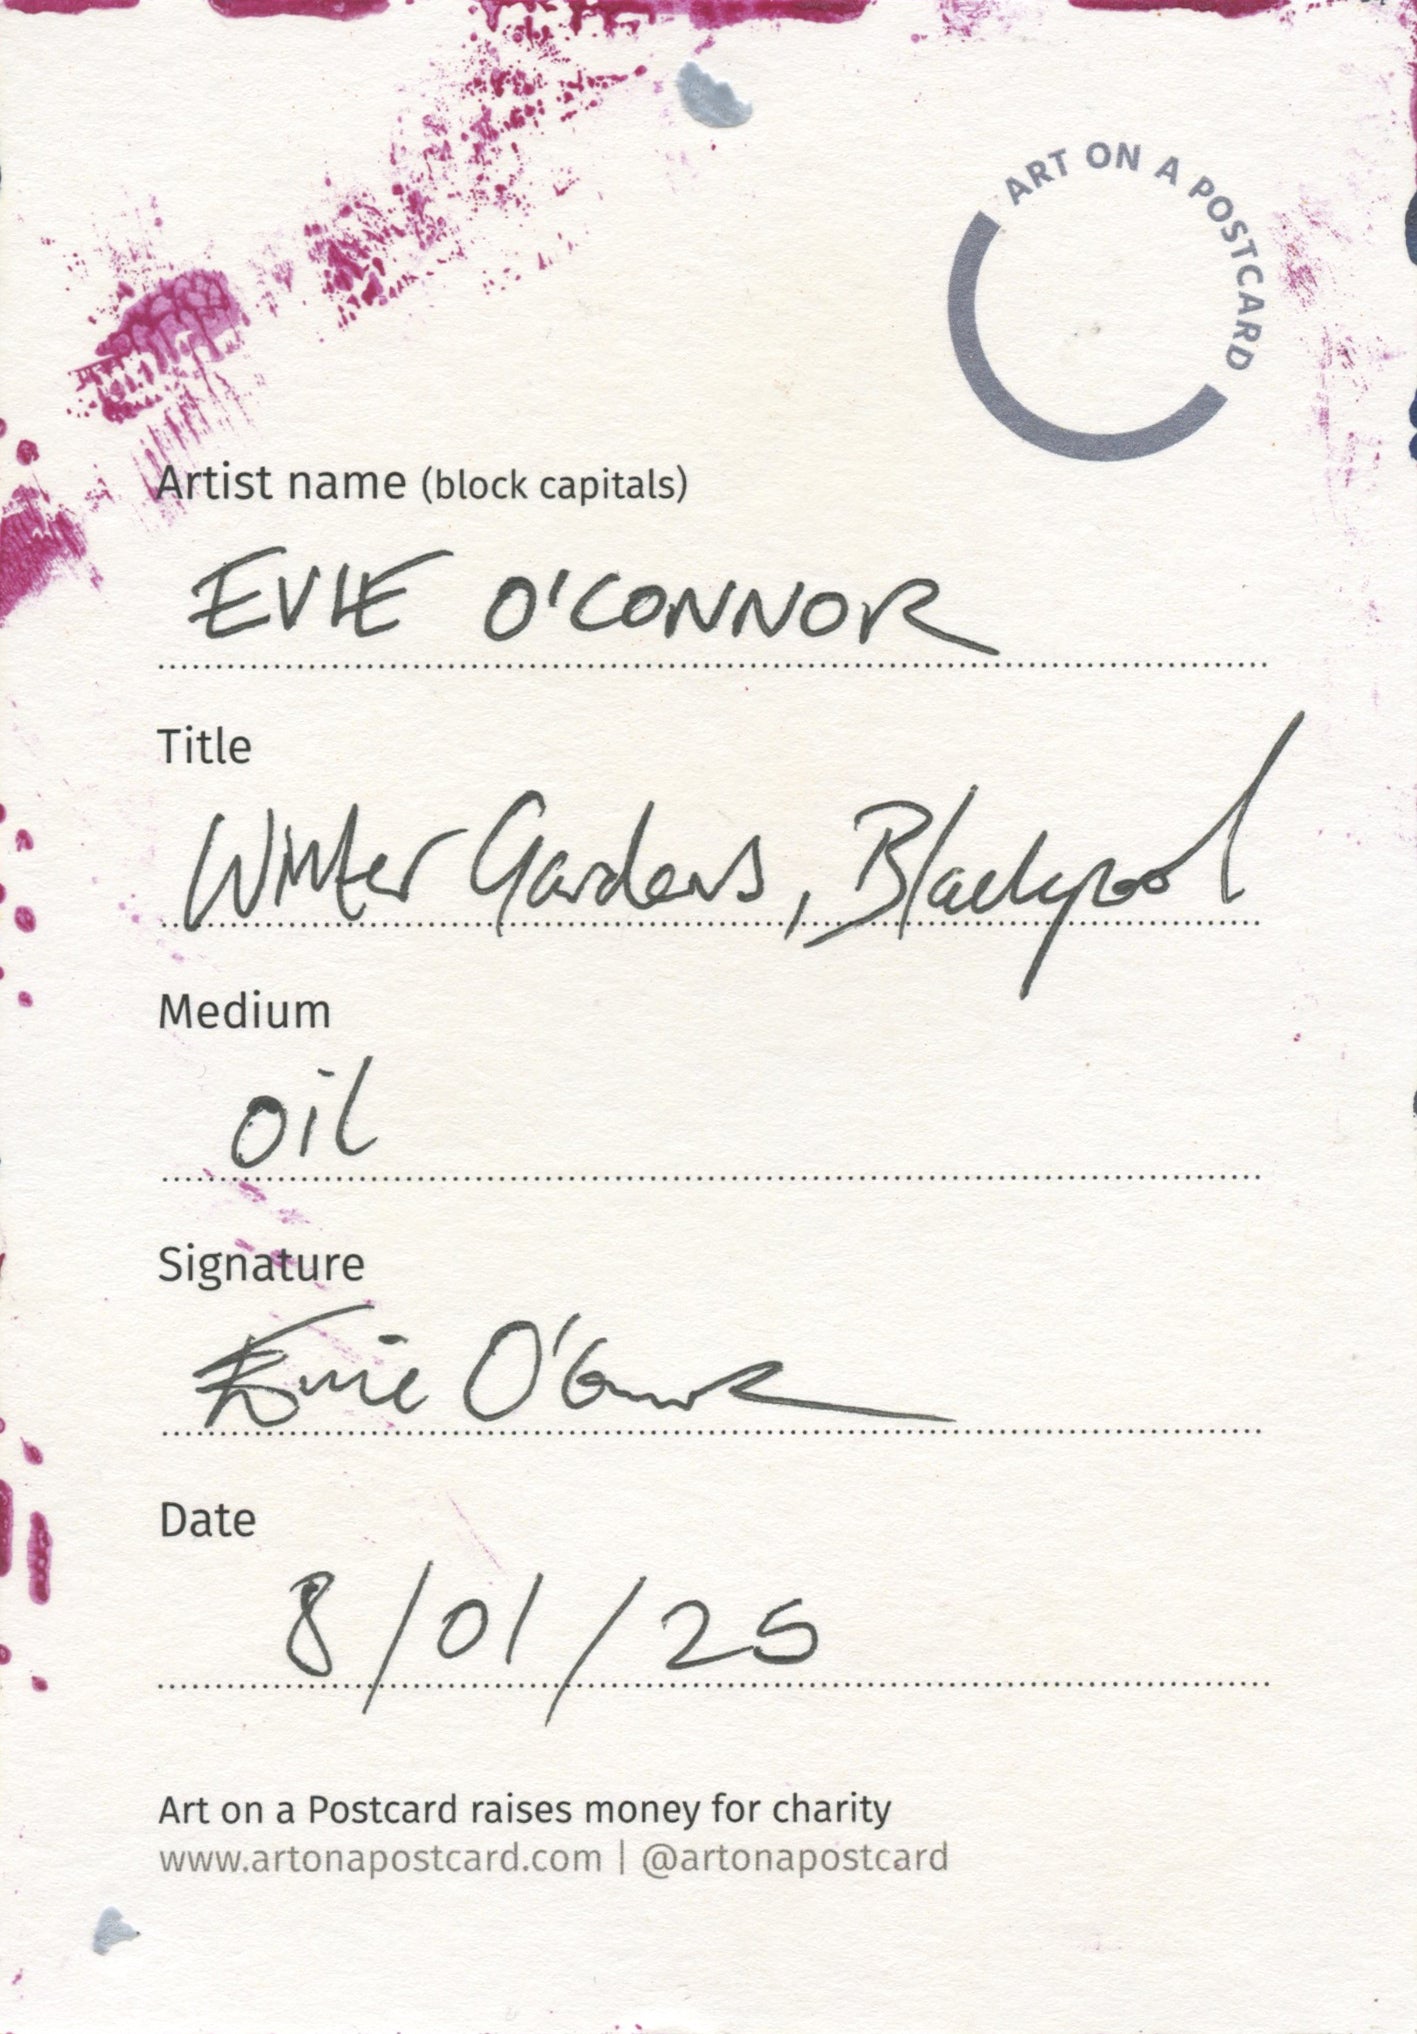 ART ON A POSTCARD
Artist name (block capitals)
EVIE O'CONNOR
Title
Winter Gardens, Blackpool
Medium
oil
Signature
Evie O'Connor
Date
8/01/25
Art on a Postcard raises money for charity
www.artonapostcard.com | @artonapostcard